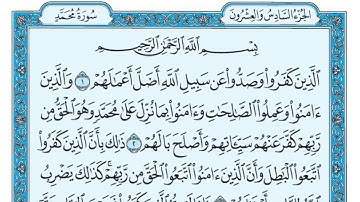 الجزء السادس والعشرون سورة محمد
بِسْمِ ٱللَّهِ ٱلرَّحْمَٰنِ ٱلرَّحِيمِ
ٱلَّذِينَ كَفَرُوا۟ وَصَدُّوا۟ عَن سَبِيلِ ٱللَّهِ أَضَلَّ أَعْمَٰلَهُمْ ١ وَٱلَّذِينَ
ءَامَنُوا۟ وَعَمِلُوا۟ ٱلصَّٰلِحَٰتِ وَءَامَنُوا۟ بِمَا نُزِّلَ عَلَىٰ مُحَمَّدٍ وَهُوَ ٱلْحَقُّ مِن
رَّبِّهِمْ كَفَّرَ عَنْهُمْ سَيِّـَٔاتِهِمْ وَأَصْلَحَ بَالَهُمْ ٢ ذَٰلِكَ بِأَنَّ ٱلَّذِينَ كَفَرُوا۟
ٱتَّبَعُوا۟ ٱلْبَٰطِلَ وَأَنَّ ٱلَّذِينَ ءَامَنُوا۟ ٱتَّبَعُوا۟ ٱلْحَقَّ مِن رَّبِّهِمْ كَذَٰلِكَ يَضْرِبُ